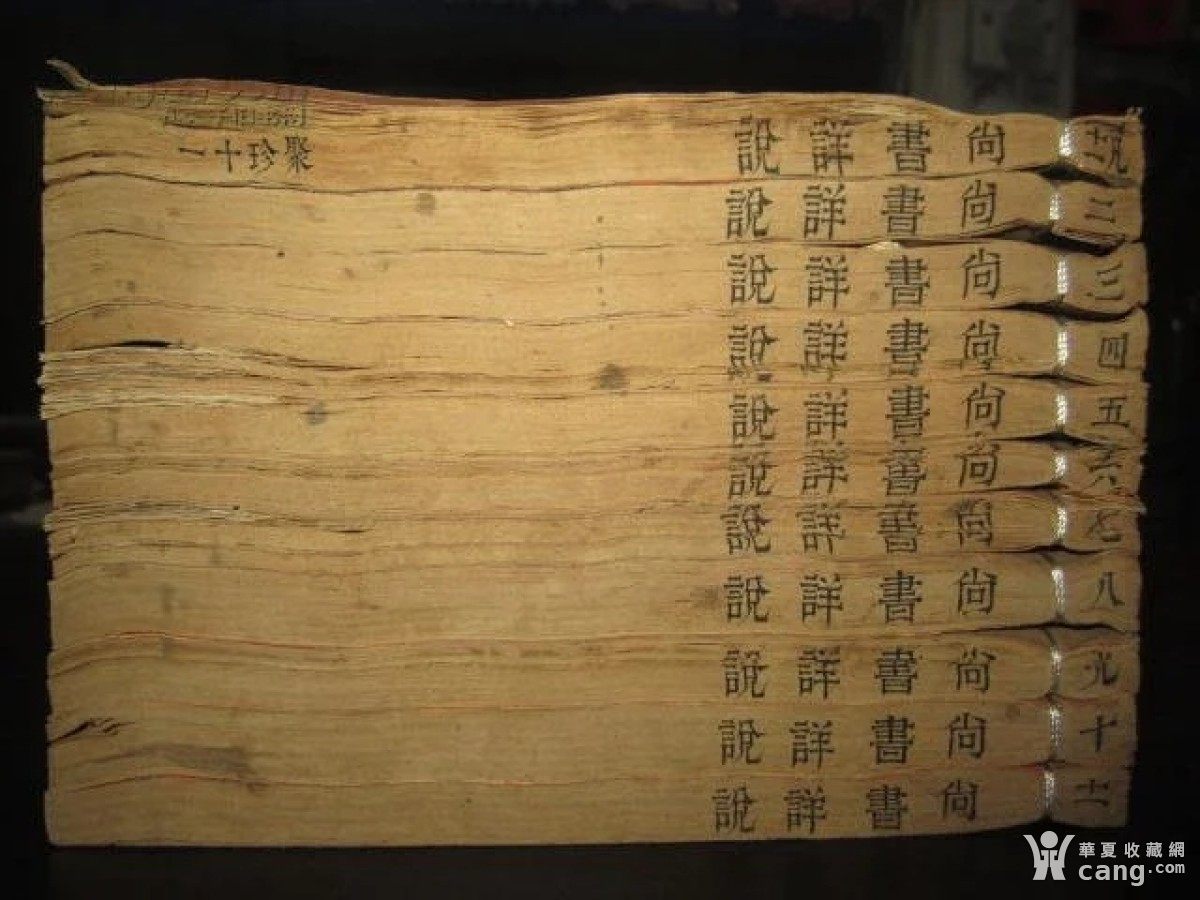 尚書詳說
二 尚書詳說
三 尚書詳說
四 尚書詳說
五 尚書詳說
六 尚書詳說
七 尚書詳說
八 尚書詳說
九 尚書詳說
十 尚書詳說
十一 尚書詳說
華夏收藏網
cang.com